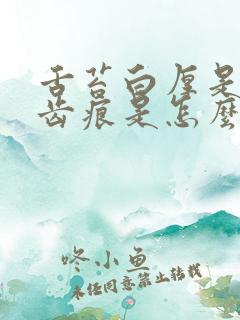 舌苔白厚是
齿痕是怎麽
咚小鱼
未经同意禁止转载